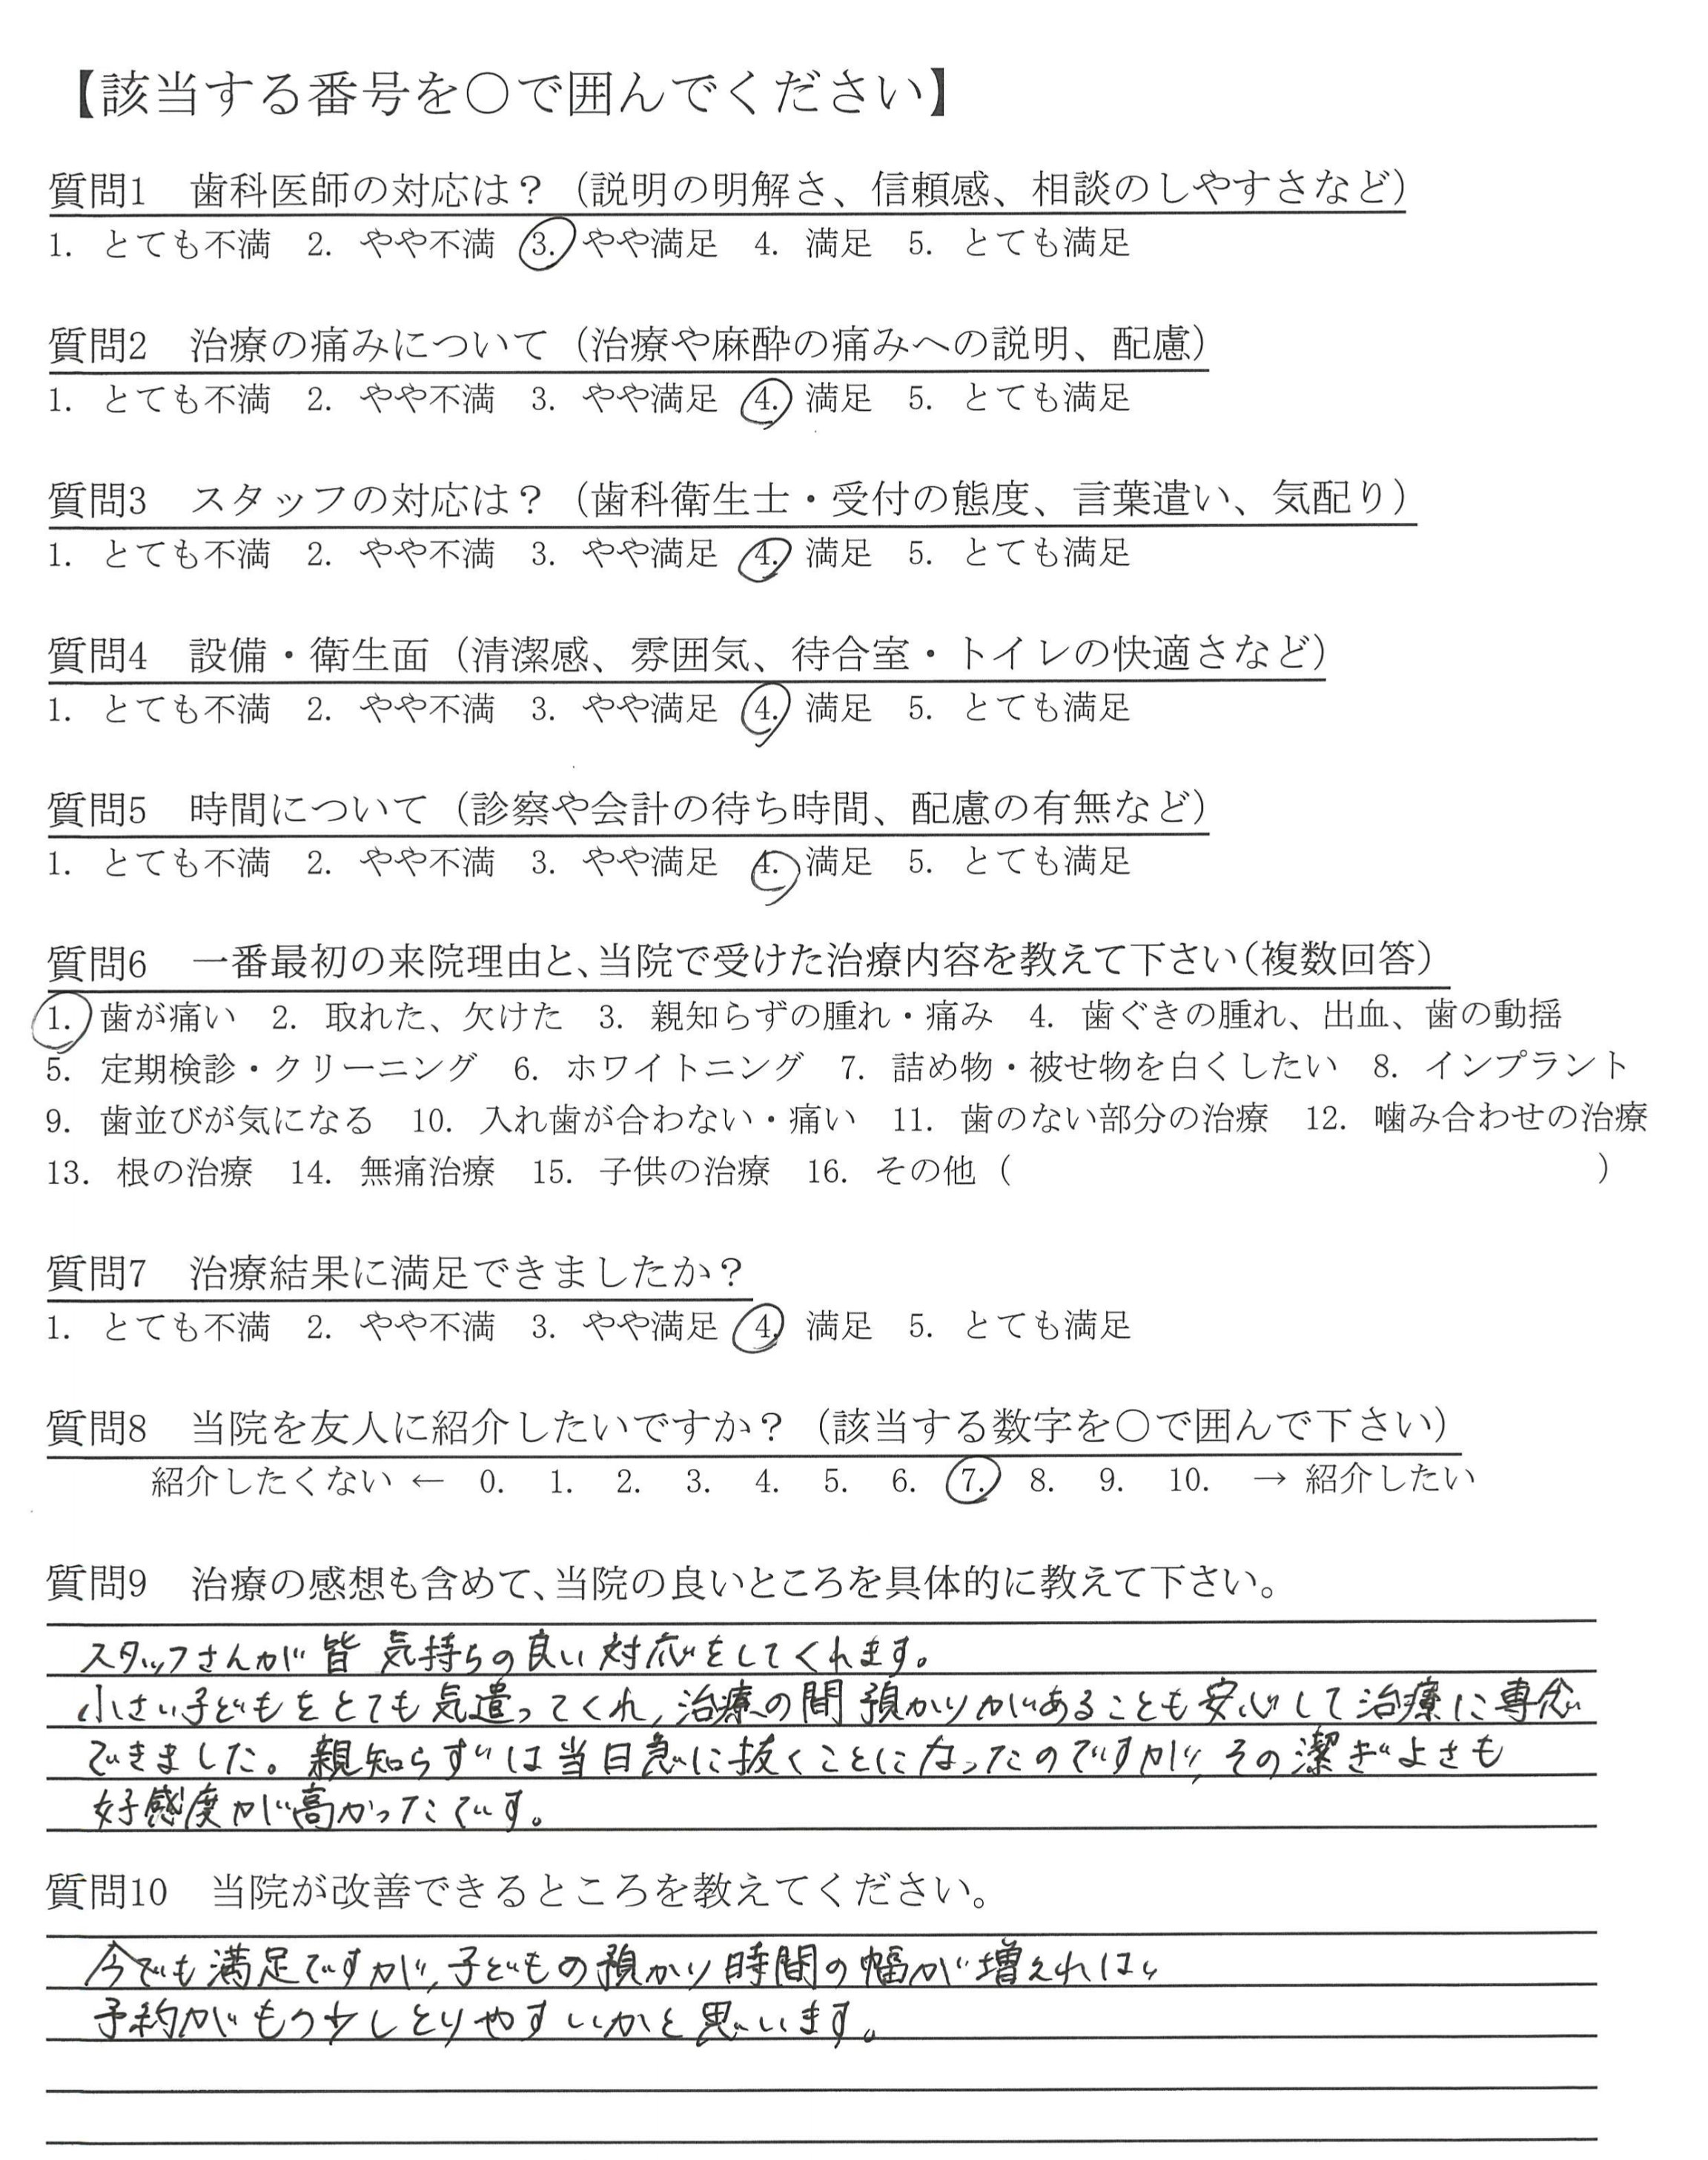 【該当する番号を○で囲んでください】
質問1 歯科医師の対応は？（説明の明解さ、信頼感、相談のしやすさなど）
1. とても不満 2. やや不満 3. やや満足 4. 満足 5. とても満足
質問2 治療の痛みについて（治療や麻酔の痛みへの説明、配慮）
1. とても不満 2. やや不満 3. やや満足 4. 満足 5. とても満足
質問3 スタッフの対応は？（歯科衛生士・受付の態度、言葉遣い、気配り）
1. とても不満 2. やや不満 3. やや満足 4. 満足 5. とても満足
質問4 設備・衛生面（清潔感、雰囲気、待合室・トイレの快適さなど）
1. とても不満 2. やや不満 3. やや満足 4. 満足 5. とても満足
質問5 時間について（診察や会計の待ち時間、配慮の有無など）
1. とても不満 2. やや不満 3. やや満足 4. 満足 5. とても満足
質問6 一番最初の来院理由と、当院で受けた治療内容を教えて下さい（複数回答）
1. 歯が痛い 2. 取れた、欠けた 3. 親知らずの腫れ・痛み 4. 歯ぐきの腫れ、出血、歯の動揺
5. 定期検診・クリーニング 6. ホワイトニング 7. 詰め物・被せ物を白くしたい 8. インプラント
9. 歯並びが気になる 10. 入れ歯が合わない・痛い 11. 歯のない部分の治療 12. 噛み合わせの治療
13. 根の治療 14. 無痛治療 15. 子供の治療 16. その他（ ）
質問7 治療結果に満足できましたか？
1. とても不満 2. やや不満 3. やや満足 4. 満足 5. とても満足
質問8 当院を友人に紹介したいですか？（該当する数字を○で囲んで下さい）
紹介したくない ← 0. 1. 2. 3. 4. 5. 6. 7. 8. 9. 10. → 紹介したい
質問9 治療の感想も含めて、当院の良いところを具体的に教えて下さい。
スタッフさんが皆 気持ちの良い対応をしてくれます。
小さい子どもをとても気遣ってくれ、治療の間預かりがあることも安心して治療に専念
できました。親知らずは当日急に抜くことになったのですが、その潔ぎよさも
好感度が高かったです。
質問10 当院が改善できるところを教えてください。
今でも満足ですが、子どもの預かり時間の幅が増えれば
予約がもう少しとりやすいかと思います。